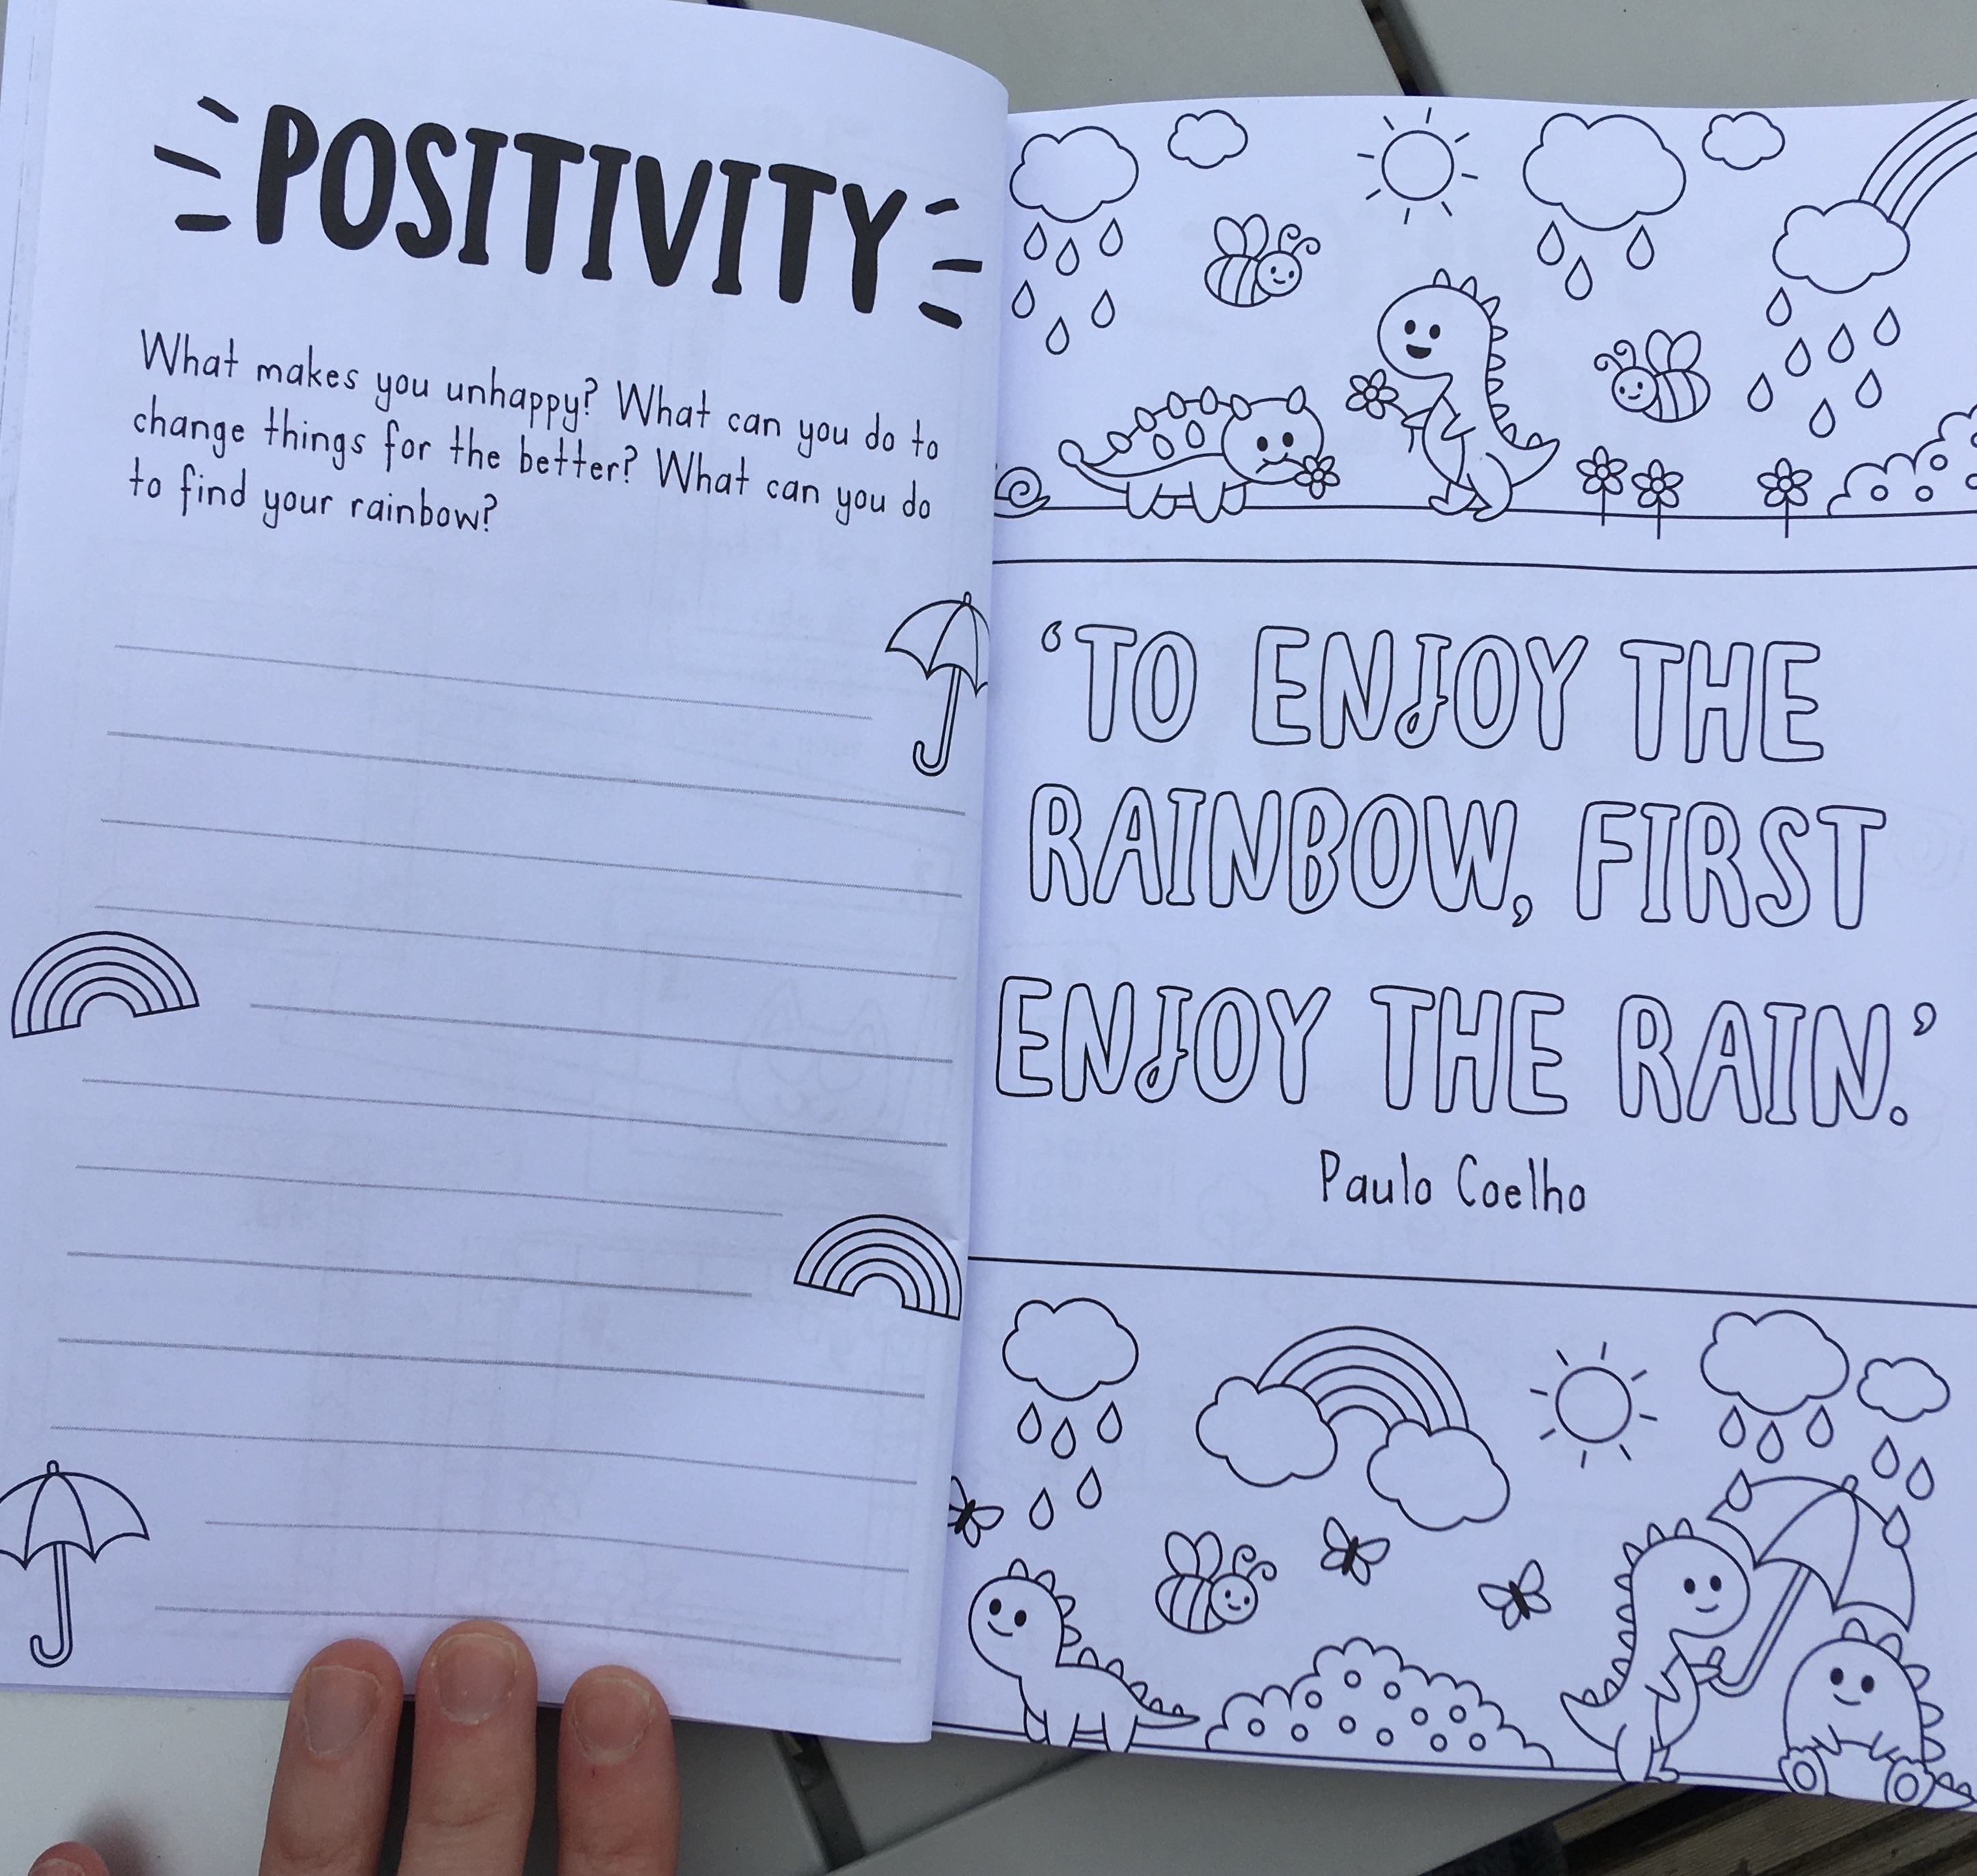 POSITIVITY
What makes you unhappy? What can you do to
change things for the better? What can you do
to find your rainbow?
‘TO ENJOY THE
RAINBOW, FIRST
ENJOY THE RAIN.’
Paulo Coelho